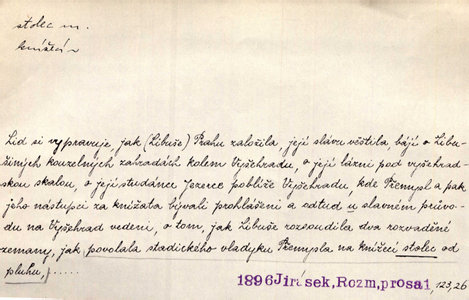 stolec m.
knížecí
Lid si vypravuje, jak (Libuše) Prahu založila, její slávu věštila, bájí o Libu-
šiných kouzelných zahradách kolem Vyšehradu, o její lázni pod vyšehrad-
skou skalou, o její studánce Jezerce poblíže Vyšehradu, kde Přemysl a pak
jeho nástupci za knížata bývali prohlášeni a odtud u slavném průvo-
du na Vyšehrad vedeni, o tom, jak Libuše rozsoudila dva rozvaděné
zemany, jak povolala stadického vladyku Přemysla na knížecí stolec od
pluhu, .....
1896 Jirásek, Rozm, prosa 1, 123,26